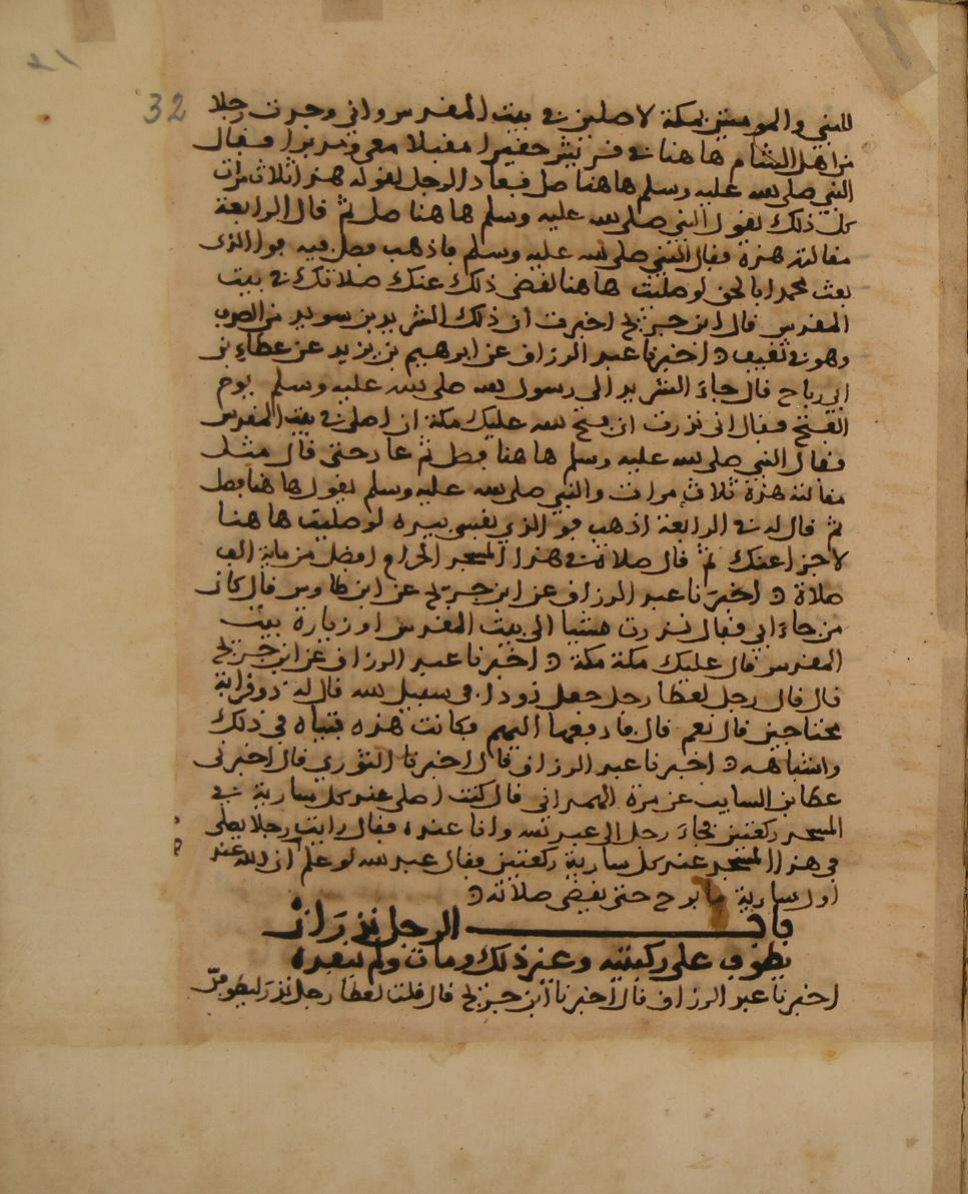 32
للنبي والمومنين بمكة لاصلين في بيت المقدس واني وجدت رجلا
من اهل الشام هاهنا في قريش خفيرا مقبلا معي ومدبرا فقال
النبي صلى الله عليه وسلم هاهنا صل فعاد الرجل لقوله هذا ثلاث مرات
كل ذلك يقول النبي صلى الله عليه وسلم هاهنا صل ثم قال الرابعة
مقالته هذه فقال النبي صلى الله عليه وسلم فاذهب فصل فيه فوالذي
بعث محمدا بالحق لو صليت هاهنا لقضى ذلك عنك صلاتك في بيت
المقدس قال ابن جريج اخبرت ان ذلك الشريد بن سويد من الصدف
وهو في ثقيف اخبرنا عبد الرزاق عن ابرهيم بن يزيد عن عطاء بن
ابي رباح قال جاء الشريد الى رسول الله صلى الله عليه وسلم يوم
الفتح فقال اني نذرت ان فتح الله عليك مكة ان اصلي في بيت المقدس
فقال النبي صلى الله عليه وسلم هاهنا فصل ثم عاد حتى قال مثل
مقالته هذه ثلاث مرات والنبي صلى الله عليه وسلم يقول هاهنا فصل
ثم قال له في الرابعة اذهب فو الذي نفسي بيده لو صليت هاهنا
لاجزا عنك ثم قال صلاة في هذا المسجد الحرام افضل من ماية الف
صلاة اخبرنا عبد الرزاق عن ابن جريج عن ابن طاوس قال كان
من جاء ابي فقال نذرت مشيا الى بيت المقدس او زيارة بيت
المقدس قال عليك مكة مكة اخبرنا عبد الرزاق عن ابن جريج
قال قال رجل لعطا رجل جعل ذودا في سبيل الله قال له ذو قرابة
محتاجين قال نعم قال فادفعها اليهم فكانت هذه فتياه في ذلك
واشباهه اخبرنا عبد الرزاق قال اخبرنا الثوري قال اخبرني
عطا بن السايب عن مرة الهمداني قال كنت اصلي عند كل سارية في
المسجد ركعتين فجاء رجل الى عبد الله وانا عنده فقال رايت رجلا يصلي
في هذا المسجد عند كل سارية ركعتين فقال عبد الله لو علم ان الله عند
اول سارية ما برح حتى يقضي صلاته
باب الرجل نذر ان
يطوف على ركبتيه وعن ذلك ومات ولم ينفذه
اخبرنا عبد الرزاق قال اخبرنا ابن جريج قال قلت لعطا رجل نذر ليطوفن